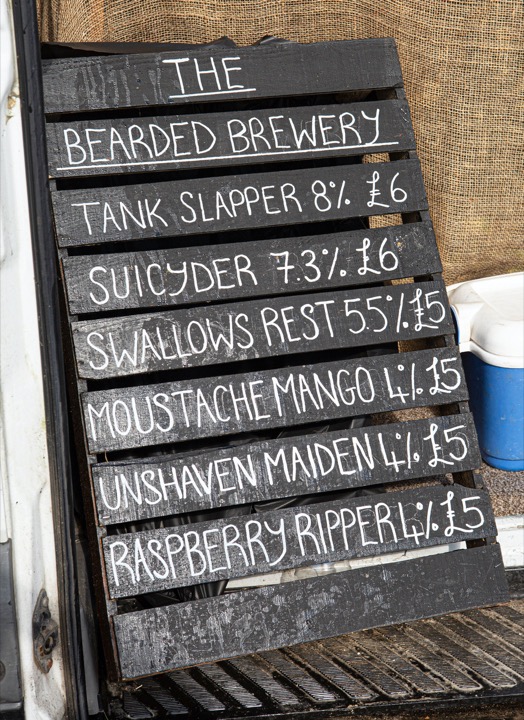 THE
BEARDED BREWERY
TANK SLAPPER 8% £6
SUICYDER 7.3% £6
SWALLOWS REST 5.5% £5
MOUSTACHE MANGO 4% £5
UNSHAVEN MAIDEN 4% £5
RASPBERRY RIPPER 4% £5